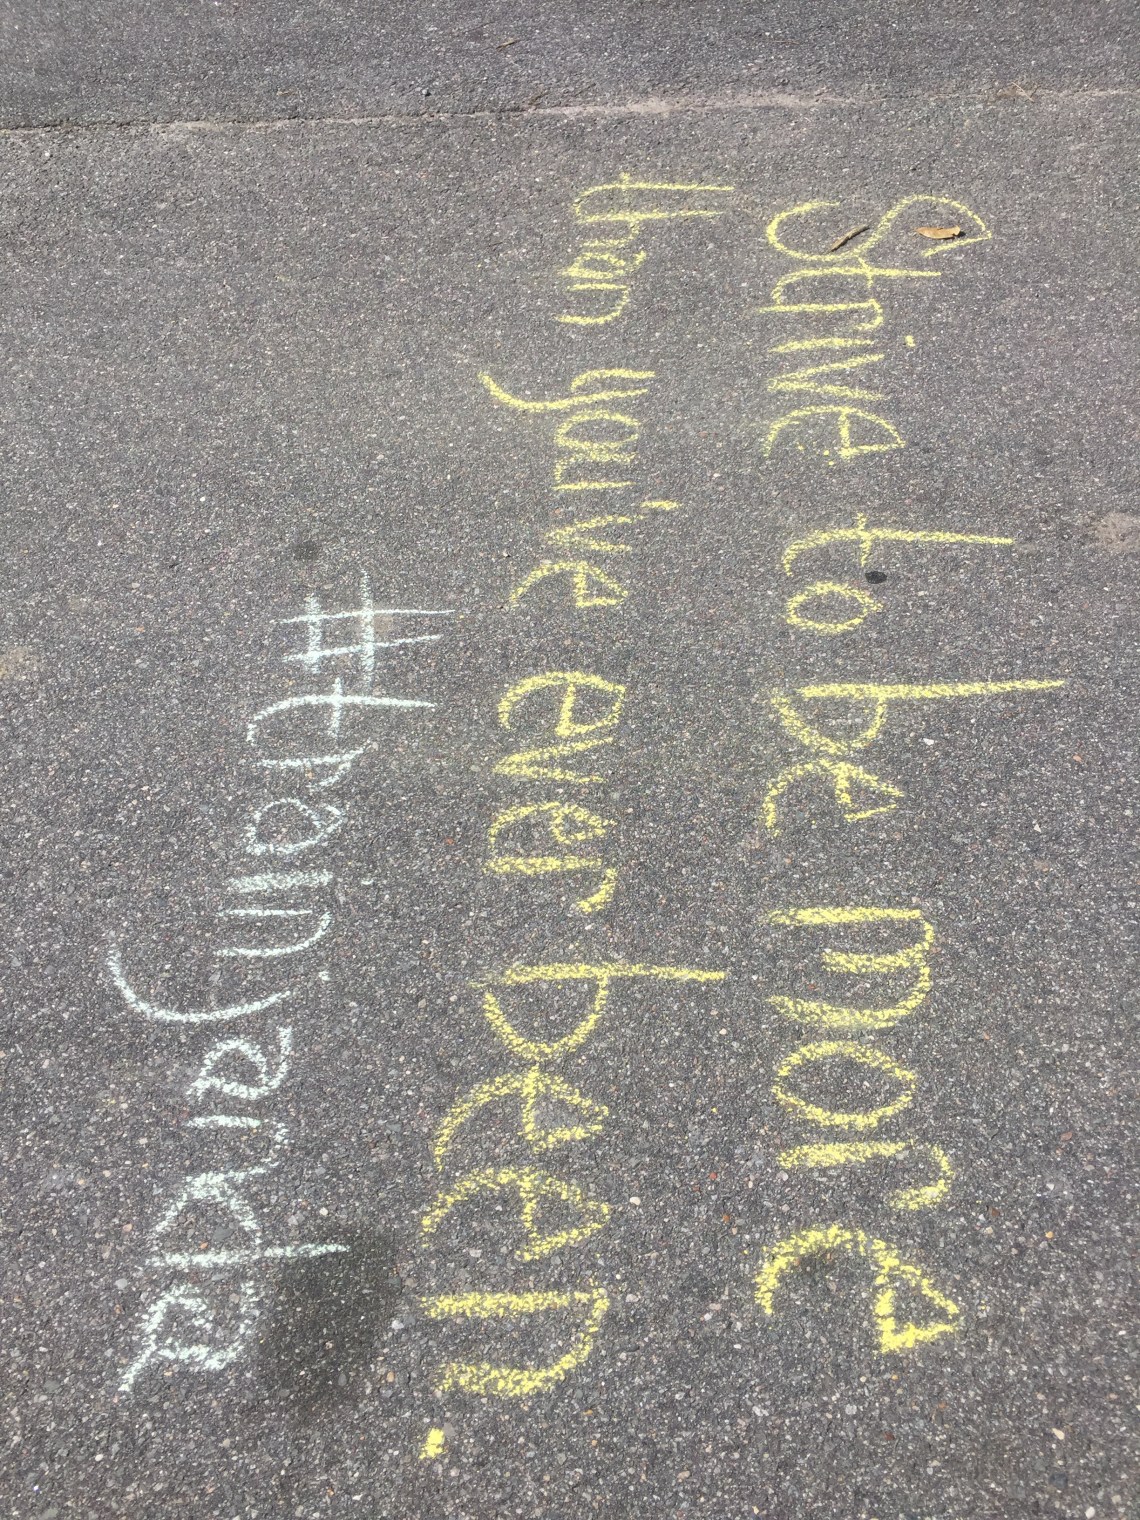 Strive to be more
than you've ever been.
#trainyanda